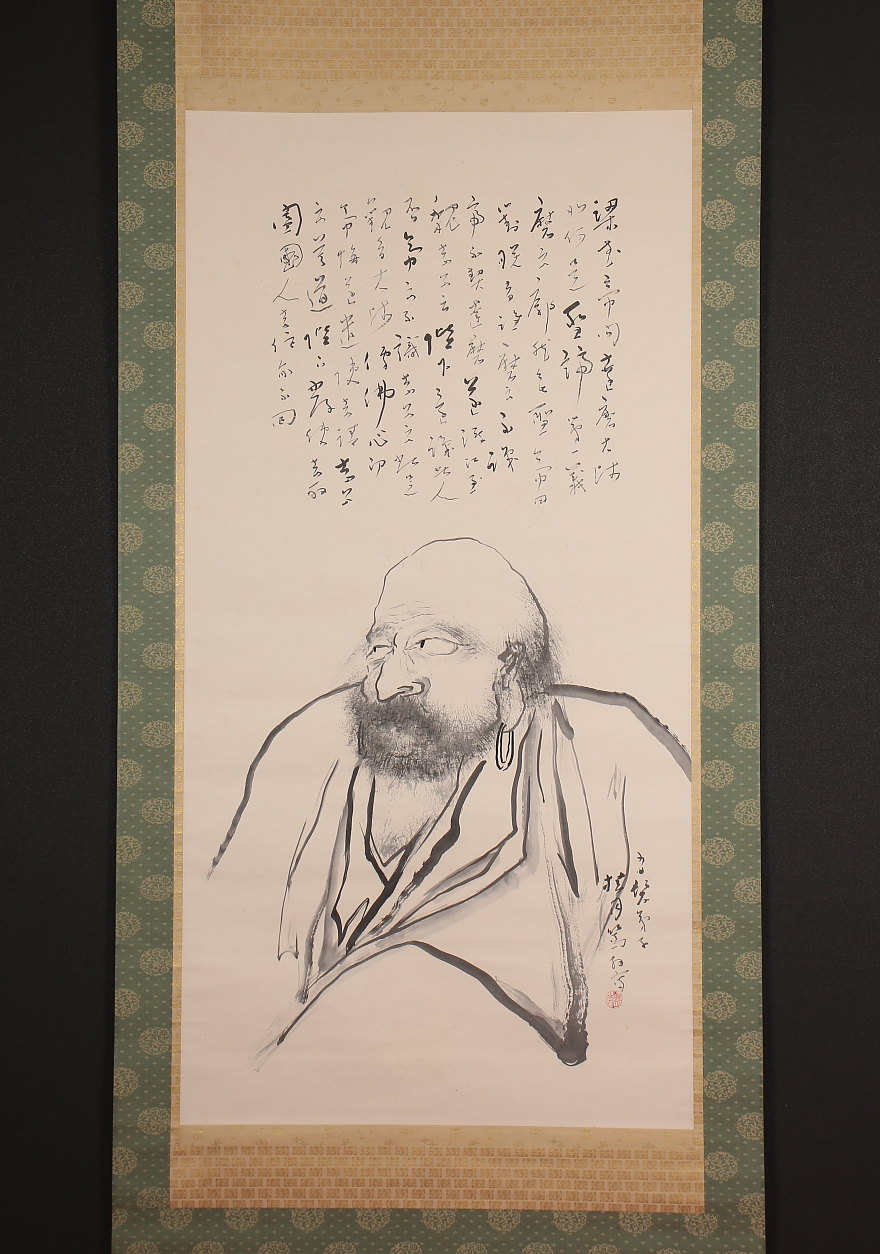 梁武帝問達磨大師
如何是聖諦第一義
磨云廓然無聖帝曰
對朕者誰磨云不識
帝不契達磨遂渡江至
魏志公云陛下還識此人
否帝云不識志公云此是
觀音大師傳佛心印
帝悔遂遣使去請志公
云莫道陛下發使去取
闔國人去佗亦不回
桂月寫